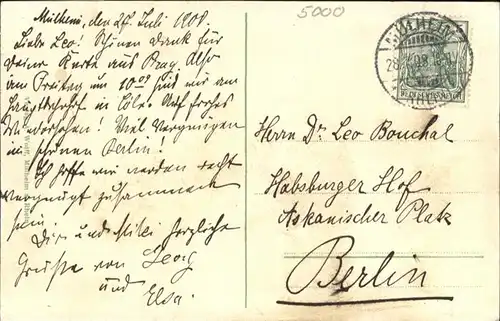 5000
Mülheim, den 27. Juli 1908.
Liebe Leo! Schönen Dank für
Deine Karte aus Prag. Also
am Freitag um 10 09 sind wir am
Hauptbahnhof in Cöln. Auf frohes
Wiedersehen! Viel Vergnügen
im schönen Berlin!
Ich hoffe wir werden recht
vergnügt zusammen
sein.
Dir und herzliche
Grüße von Georg
und Elsa.
MÜLHEIM
Herrn Dr. Leo Bouchal
Habsburger Hof
Askanischer Platz
Berlin